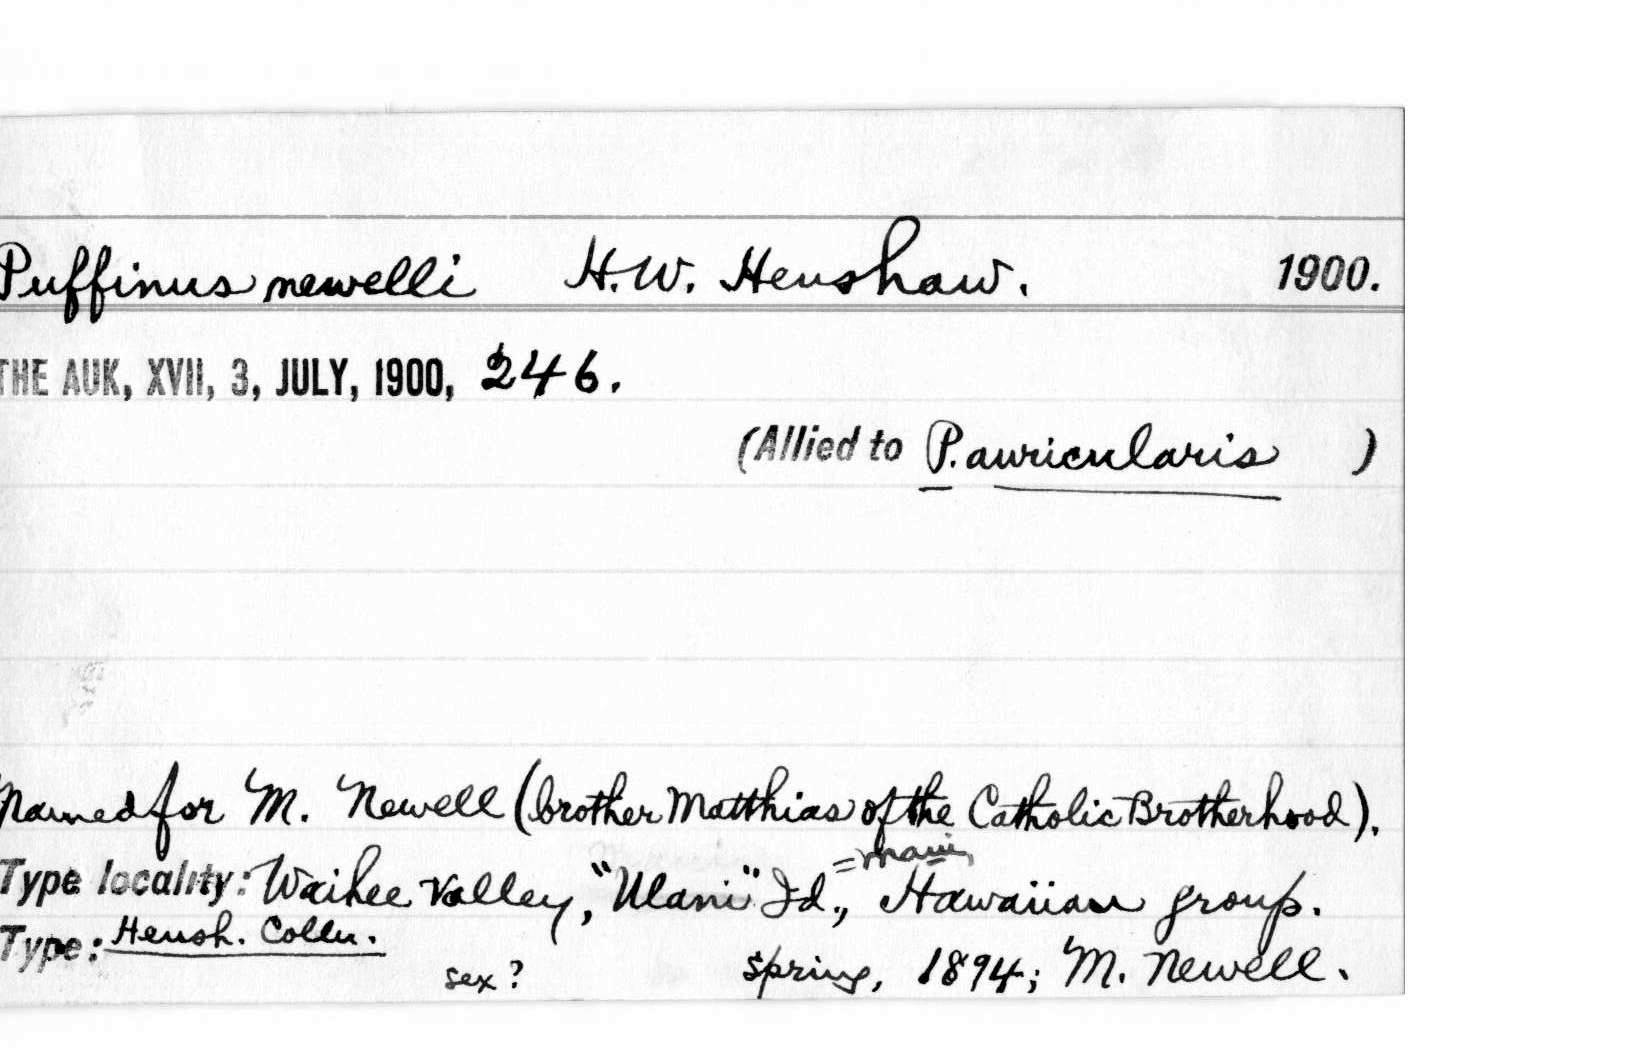 Puffinus newelli H.W. Henshaw. 1900.
THE AUK, XVII, 3, JULY, 1900, 246.
(Allied to P. auricularis )
Named for M. Newell (brother Matthias of the Catholic Brotherhood).
= Maui,
Type locality: Waihee Valley, "Ulani" Id., Hawaiian group.
Type: Hensh. Colln.
sex? Spring, 1894; M. Newell.